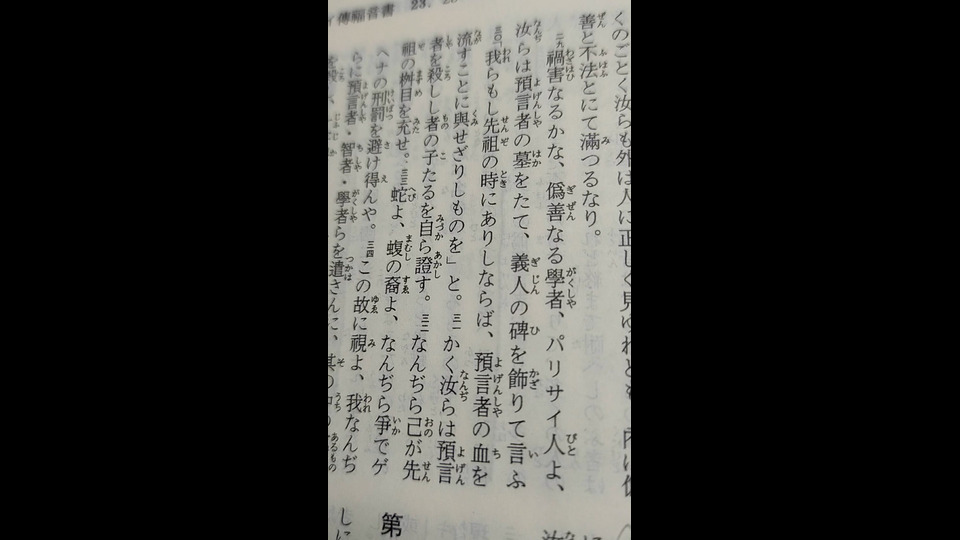 傳福音書 23
くのごとく汝らも外は人に正しく見ゆれども、内は
善と不法とにて滿つるなり。
二九禍害なるかな、僞善なる學者、パリサイ人よ、
汝らは預言者の墓をたて、義人の碑を飾りて言ふ
三〇「我らもし先祖の時にありしならば、預言者の血を
流すことに與せざりしものを」と。三一かく汝らは預言
者を殺しし者の子たるを自ら證す。三二なんぢら己が先
祖の桝目を充せ。三三蛇よ、蝮の裔よ、なんぢら爭でゲ
ヘナの刑罰を避け得んや。三四この故に視よ、我なんぢ
らに預言者・智者・學者らを遣さんに、其の
第